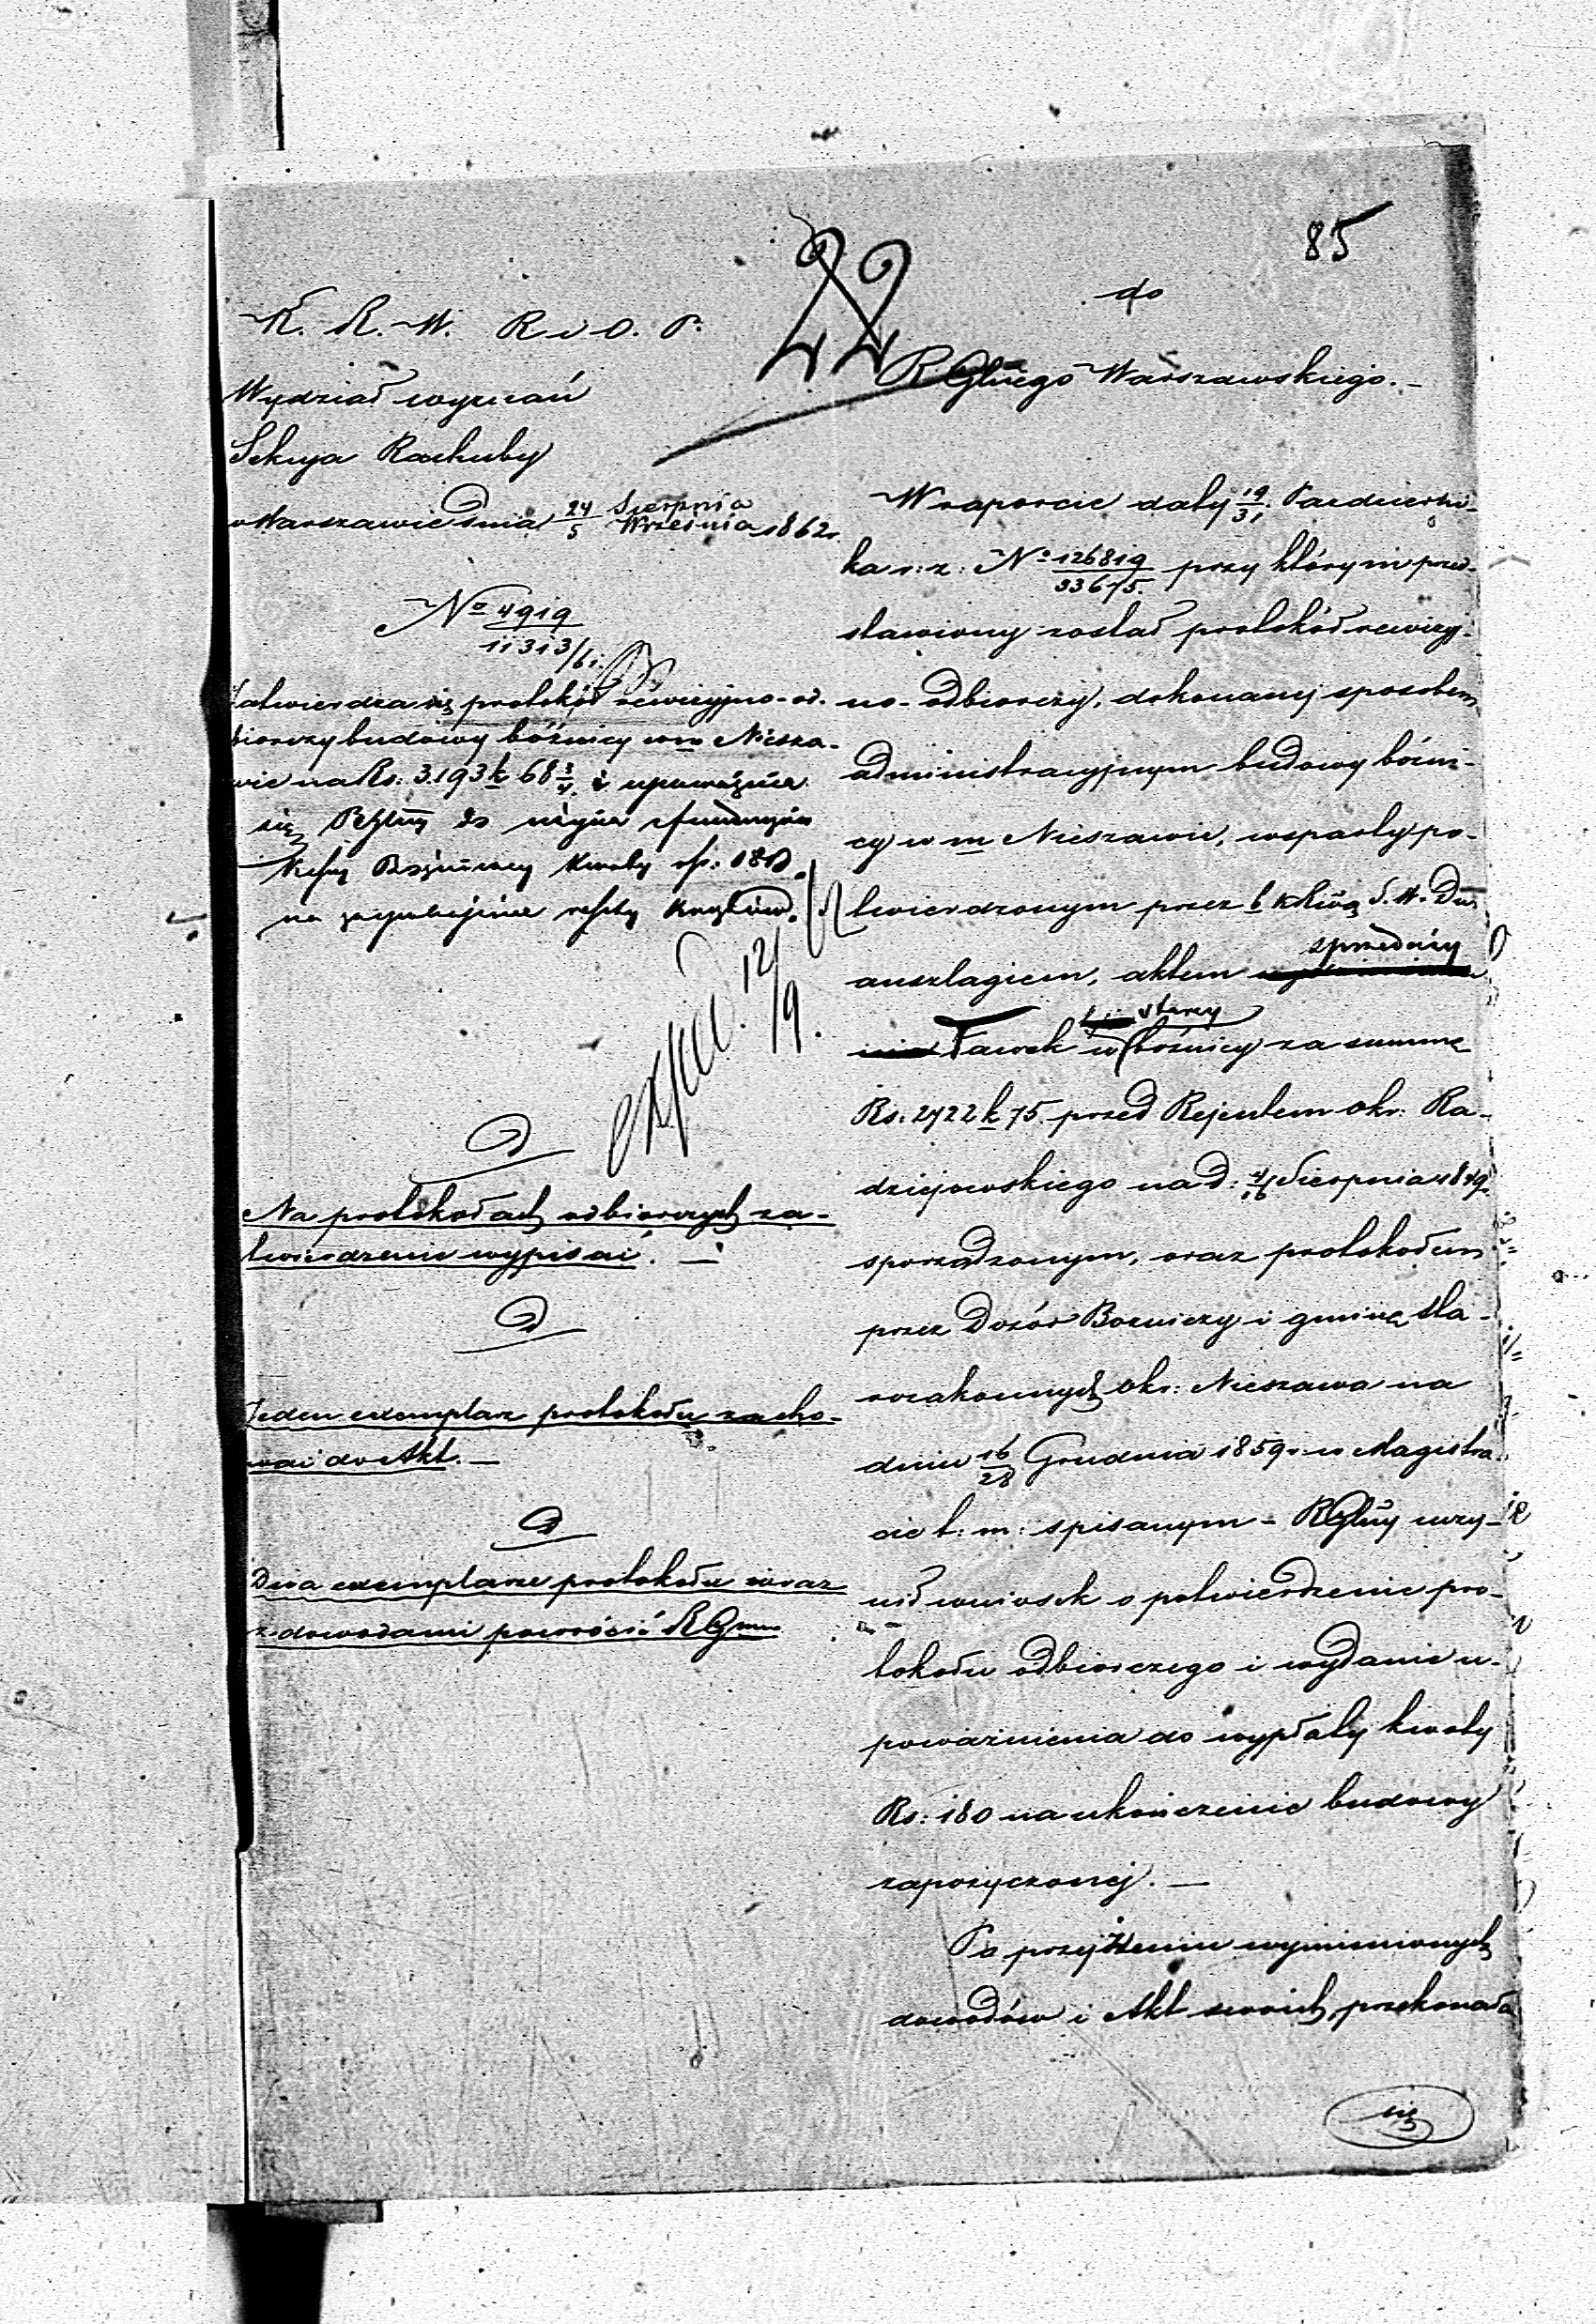 85
22
K. R. W. R i O. P.
Wydział wyznań
Sekcya Rachuby
w Warszawie dnia 24/5 Sierpnia/Września 1862 r.
No 4919/11313/61.
Zatwierdza się protokół rewizyjno-od-
biorczy budowy bóżnicy w m Niesza-
wie na Rs: 3.193 k 68 3/4 i upoważnia
się RGlny do użycia z funduszów
Kassy Bożniczey kwoty rs: 180.
na zaspokojenie reszty kosztów.
exped. 12/9.
D
Na protokołach odbiorczych za-
twierdzenie wypisać. —
D
Jeden exemplarz protokołu zacho-
wać do Akt. —
D
Dwa exemplarze protokołu wraz
z dowodami powrócić RGmu
do
RGlnego Warszawskiego. –
W raporcie daty 19/31 Październi-
ka r: z: No 126819/33675. przy którym przed-
stawiony został protokół rewizyj-
no-odbiorczy, dokonanej sposobem
administracyjnym budowy bóżni-
cy w m Nieszawie, wsparty po-
twierdzonym przez b K Rwą S. W. Du:
anszlagiem, aktem sprzedaży
ławek w starey bóżnicy za summę
Rs: 2722 k 75. przed Rejentem Okr: Ra-
dziejowskiego na d: 4/16 Sierpnia 1849
sporządzonym, oraz protokołem
przez Dozór Bozniczy i gminę sta-
rozakonnych Okr: Nieszawa na
dniu 16/28 Grudnia 1859 r: w Magistra-
cie t: m: spisanym – RGlny uczy-
nił wniosek o potwierdzenie pro-
tokołu odbiorczego i wydanie u-
poważnienia do wypłaty kwoty
Rs: 180 na ukończenie budowy
zapożyczonej. —
Po przejrzeniu wymienionych
dowodów i Akt swoich, przekonała
się